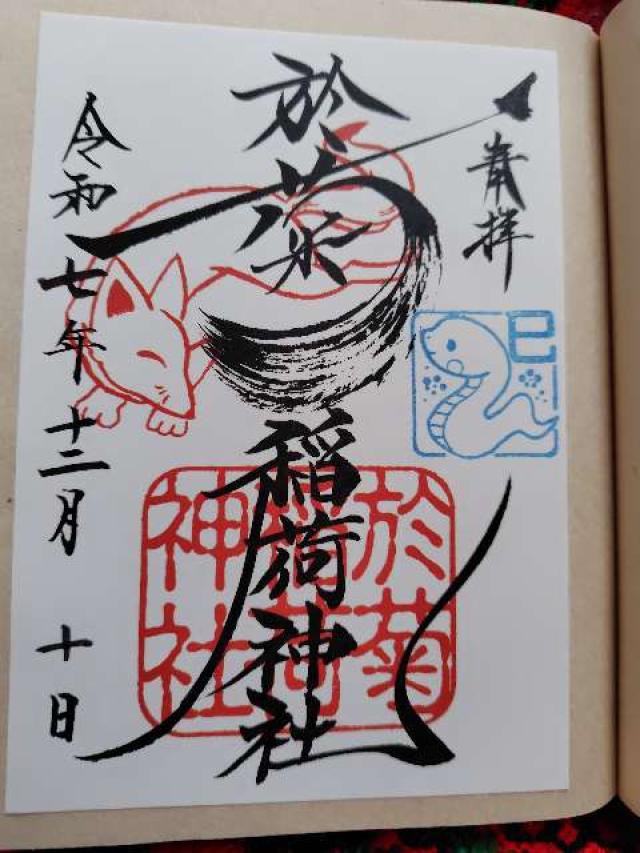 奉拝
巳
於菊稲荷神社
於菊稲荷神社
令和七年十二月十日